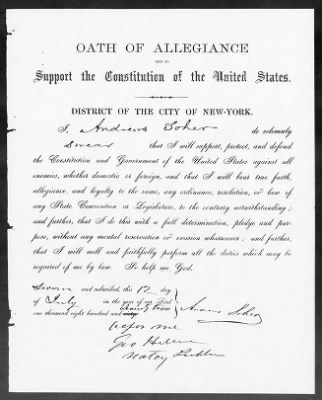 OATH OF ALLEGIANCE
AND TO
Support the Constitution of the United States.
DISTRICT OF THE CITY OF NEW-YORK.
I, Andreas Soher do solemnly
swear that I will support, protect, and defend
the Constitution and Government of the United States against all
enemies, whether domestic or foreign, and that I will bear true faith,
allegiance, and loyalty to the same, any ordinance, resolution, or law of
any State Convention or Legislature, to the contrary notwithstanding;
and further, that I do this with a full determination, pledge and pur-
pose, without any mental reservation or evasion whatsoever; and further,
that I will well and faithfully perform all the duties which may be
required of me by law. So help me God.
Sworn and subscribed, this 12 day
of July in the year of our Lord
one thousand eight hundred and
Andreas Soher
before me
Geo
Notary Public